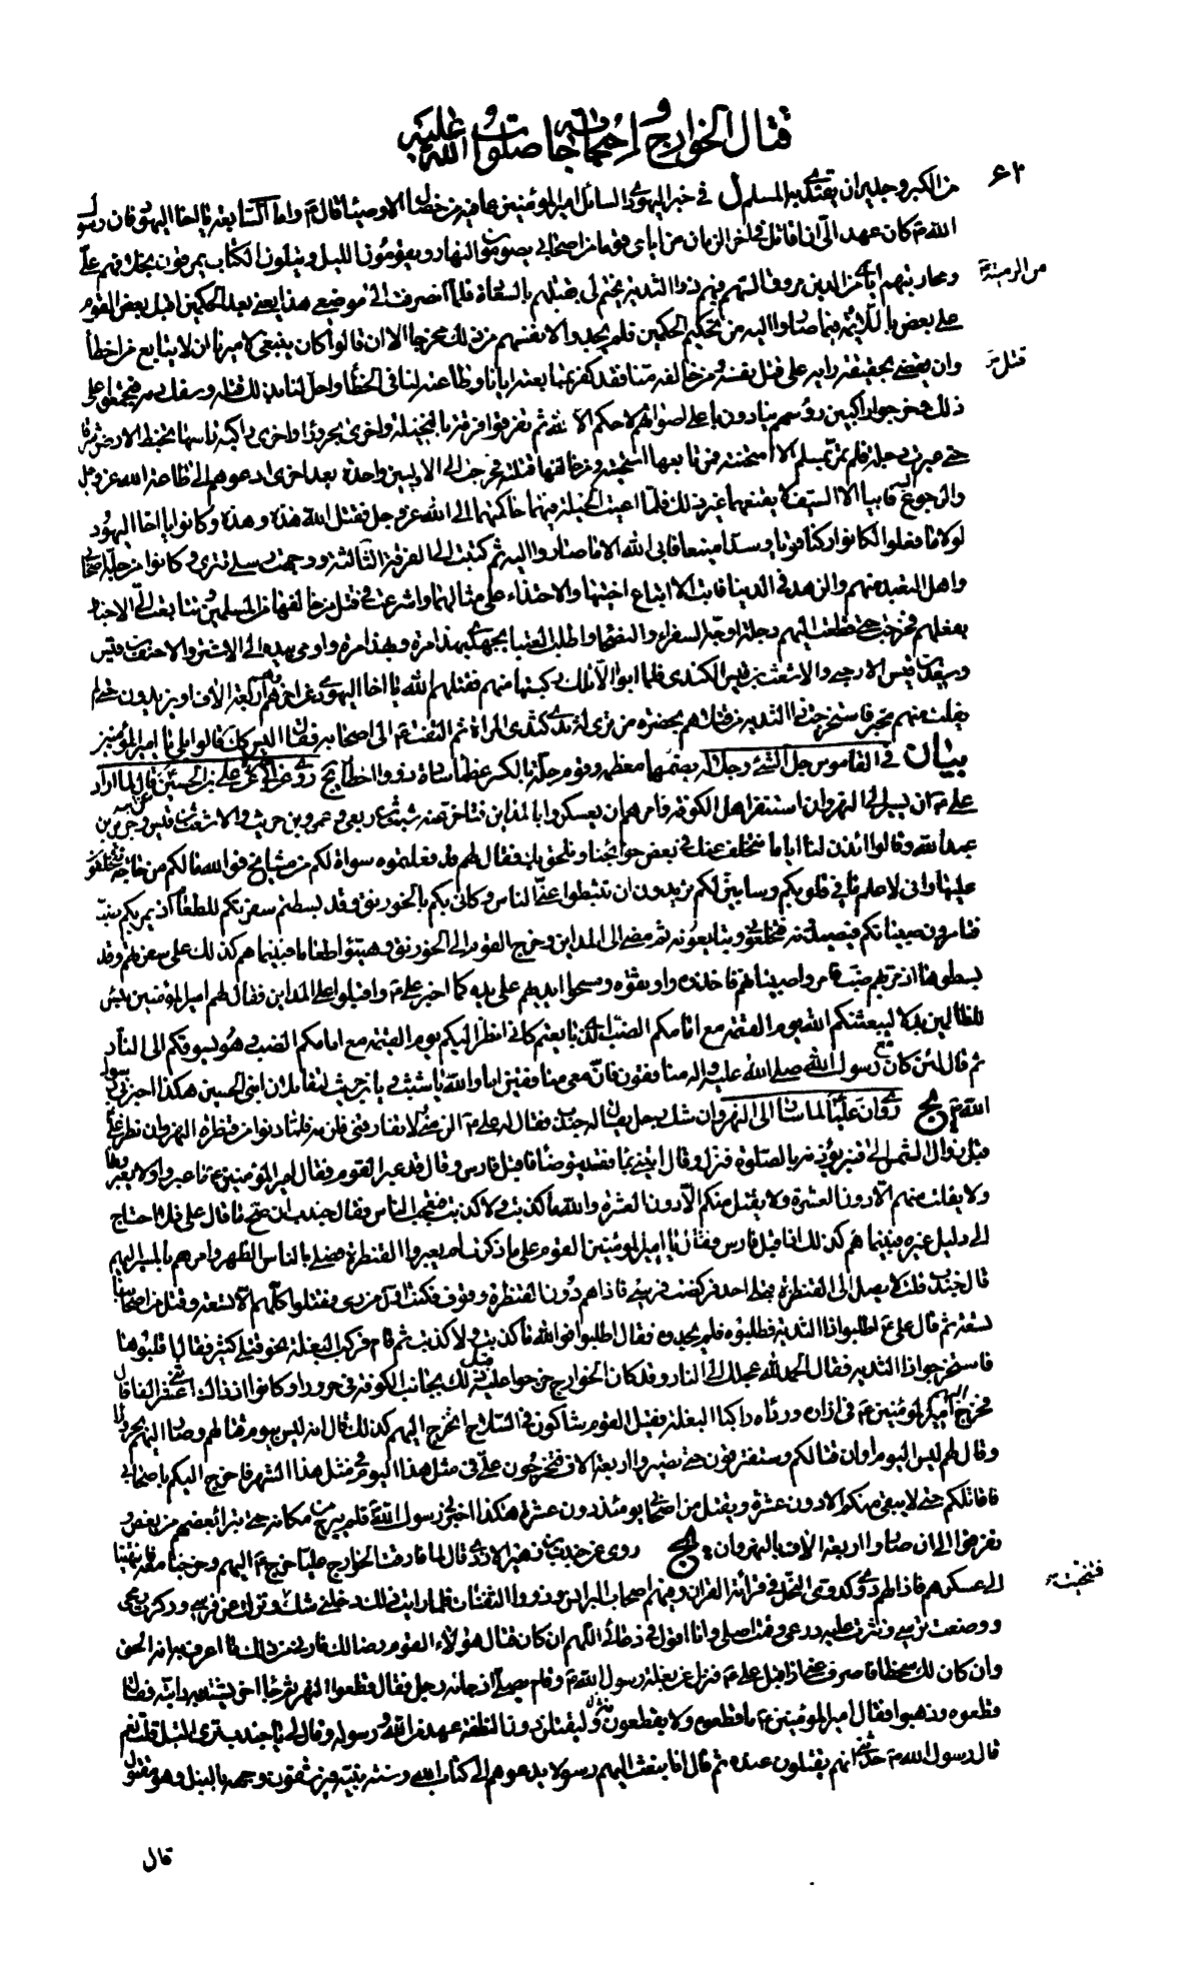 قتال الخوارج و احتجاجاته صلوات الله عليه
۶۱۲
من الكبر وجلبران يعتكبر المسلم ل في خبر اليهودي السائل امير المؤمنين عما فيه من خصال الاوصياء قال ع واما السابعة يا اخا اليهود فان رسول
الله ص كان عهد الى ان اقاتل في اخر الزمان من ايامي قوما من اصحابي يصومون النهار ويقومون الليل ويتلون الكتاب يمرقون بخلافهم على
ومحاربتهم اياي من الدين مروق السهم فيهم ذو الثدية يختم لي بقتلهم بالسعادة فلما انصرفت الى موضعي هذا يعني بعد الحكمين اقبل بعض القوم
من الرمية
على بعض باللائمة فيما صاروا اليه من تحكيم الحكمين فلم يجدوا لانفسهم من ذلك مخرجا الا ان قالوا كان ينبغي لاميرنا ان لا يتابع من اخطأ
وان يقضي بحقيقة رايه على قتل نفسه و من خالفه منا فقد كفر بمتابعته ايانا وطاعته لنا في الخطأ واحل لنا بذلك قتله وسفك دمه فتجمعوا على
قتل
ذلك وخرجوا راكبين رؤسهم ينادون باعلى اصواتهم لا حكم الا لله ثم تفرقوا فرقة بالنخيلة واخرى بحروراء واخرى راكبة راسها تخبط الارض شرقا
حتى عبرت دجلة فلم تمر بمسلم الا امتحنته فمن تابعها استحيته ومن خالفها قتلته فخرجت الى الاوليين واحدة بعد اخرى ادعوهم الى طاعة الله عز وجل
والرجوع اليه فابيا الا السيف لا يقنعهما غير ذلك فلما اعيت الحيلة فيهما حاكمتهما الى الله عز وجل فقتل الله هذه وهذه وكانوا يا اخا اليهود
لولا ما فعلوا لكانوا ركنا قويا وسدا منيعا فابى الله الا ما صاروا اليه ثم كتبت الى الفرقة الثالثة ووجهت رسلي تترى وكانوا من جلة اصحابي
واهل التعبد منهم والزهد في الدنيا فابت الا اتباع اختيها والاحتذاء على مثالهما واشرعت في قتل من خالفها من المسلمين وتتابعت الي الاخبار
بفعلهم فخرجت حتى قطعت اليهم دجلة اوجه السفراء والنصحاء واطلب العتبى بجهدي بهذا مرة وبهذا مرة واومى بيده الى الاشتر والاحنف بن قيس
وسعيد بن قيس الارحبي والاشعث بن قيس الكندي فلما ابوا الا تلك ركبتها منهم فقتلهم الله يا اخا اليهود عن اخرهم وهم اربعة الاف او يزيدون حتى لم
يفلت منهم مخبر فاستخرجت ذا الثدية من قتلاهم بحضرة من ترى له ثدي كثدي المراة ثم التفت ع الى اصحابه فقال اليس كذلك قالوا بلى يا امير المؤمنين
بيان في القاموس جل الشئ وجلاله بضمهما معظمه وقوم جلة بالكسر عظماء سادة ذووا اخطار يج روي عن الاعمش علي بن الحسين قال لما اراد
علي ع ان يسير الى النهروان استنفر اهل الكوفة فامرهم ان يعسكروا بالمداين فتاخر عنه شبث بن ربعي و عمرو بن حريث والاشعث بن قيس وجرير بن
عبد الله وقالوا ائذن لنا اياما نتخلف عنك في بعض حوائجنا ونلحق بك فقال لهم قد فعلتموه سواة لكم من مشايخ فو الله مالكم من حاجة تتخلفون
عليها واني لاعلم ما في قلوبكم وسابين لكم تريدون ان تثبطوا عني الناس وكاني بكم بالخورنق وقد بسطتم سفرتكم للطعام اذ يمر بكم ضب
فتامرون صبيانكم فيصيدونه فتخلعوني وتبايعونه ثم مضى الى المداين وخرج القوم الى الخورنق وهيئوا طعاما فبينما هم كذلك على سفرتهم وقد
بسطوها اذ مر بهم ضب فامروا صبيانهم فاخذوه واوثقوه ومسحوا ايديهم على يده كما اخبر علي ع واقبلوا على المداين فقال لهم امير المؤمنين بئس
للظالمين بدلا ليبعثنكم الله يوم القيمة مع امامكم الضب الذي بايعتم كاني انظر اليكم يوم القيمة مع امامكم الضب وهو يسوقكم الى النار
ثم قال لئن كان مع رسول الله صلى الله عليه واله منافقون فان معي منافقين اما والله يا شبث ويا بن حريث لتقاتلان ابني الحسين هكذا اخبرني رسول
الله ص يج روي ان عليا لما سار الى النهروان شك رجل يقال له جندب فقال له علي ع الزمني لا تفارقني فلزمه فلما دنوا من قنطرة النهروان نظر علي
قبل زوال الشمس الى قنبر يؤذنه بالصلوة فنزل وقال ائتني بماء فقعد يتوضأ فاقبل فارس وقال قد عبر القوم فقال امير المؤمنين ع ما عبروا ولا يعبرونها
ولا يفلت منهم الا دون العشرة ولا يقتل منكم الا دون العشرة والله ما كذبت ولا كذبت فتعجب الناس فقال جندب ان صح ما قال علي فلا احتاج
الى دليل غيره فبينما هم كذلك اذ اقبل فارس وقال يا امير المؤمنين القوم على ما ذكرت لم يعبروا القنطرة فصلى بالناس الظهر وامرهم بالمسير اليهم
قال جندب قلت لا يصل الى القنطرة قبلي احد فركضت فرسي فاذا هم دون القنطرة وقوف فكنت اول من رمى فقتلوا كلهم الا تسعة وقتل من اصحابنا
تسعة ثم قال علي ع اطلبوا ذا الثدية فطلبوه فلم يجدوه فقال اطلبوا فو الله ما كذبت ولا كذبت ثم قام فركب البغلة نحو قتلى كثير فقال اقلبوها
فاستخرجوا ذا الثدية فقال الحمد لله عجلك الى النار وقد كان الخوارج خرجوا عليه قبل ذلك بجانب الكوفة في حروراء وكانوا اذ ذاك اثنى عشر الفا قال
فخرج اليهم امير المؤمنين ع في ازاره وردئاه راكبا البغلة فقيل القوم شاكون في السلاح اتخرج اليهم كذلك قال انه ليس بيوم قتالهم وصار اليهم بحروراء
وقال لهم ليس اليوم اوان قتالكم وستفترقون حتى تصيروا اربعة الاف فتخرجون علي في مثل هذا اليوم في مثل هذا الشهر فاخرج اليكم باصحابي
فاقاتلكم حتى لا يبقى منكم الا دون عشرة ويقتل من اصحابي يومئذ دون عشرة هكذا اخبرني رسول الله ص فلم يبرح من مكانه حتى تبرأ بعضهم من بعض و
تفرقوا الى ان صاروا اربعة الاف بالنهروان يج روى عن جندب بن زهير الازدي قال لما فارقت الخوارج عليا خرج ع اليهم وخرجنا معه فانتهينا
فتنحيت
الى عسكرهم فاذا لهم دوي كدوي النحل في قرائة القران وفيهم اصحاب البرانس وذووا الثفنات فلما رايت ذلك دخلني شك ونزلت عن فرسي وركزت رمحي
ووضعت ترسي ونثرت عليه درعي وقمت اصلي وانا اقول في دعائي اللهم ان كان قتال هؤلاء القوم رضا لك فارني من ذلك ما اعرف به انه الحق
وان كان لك سخطا فاصرف عني اذ اقبل علي ع فنزل عن بغلة رسول الله ص وقام يصلي اذ جاءه رجل فقال قطعوا النهر ثم جاء اخر يشتد به دابته فقال
قطعوه وذهبوا فقال امير المؤمنين ع ما قطعوه ولا يقطعون وليقتلن دون النطفة عهد من الله ورسوله وقال لي يا جندب ترى التل قلت نعم
قال رسول الله ص حدثني انهم يقتلون عنده ثم قال انا نبعث اليهم رسولا يدعوهم الى كتاب الله وسنة نبيه فيرشقون وجهه بالنبل وهو مقتول
قال